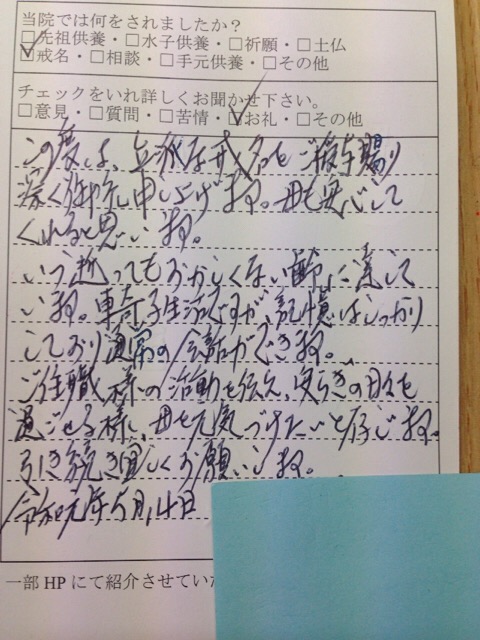 当院では何をされましたか？
□先祖供養・□水子供養・□祈願・□土仏
☑戒名・□相談・□手元供養・□その他
チェックをいれ詳しくお聞かせ下さい。
□意見・□質問・□苦情・☑お礼・□その他
この度は、立派な戒名をご授与賜り
深く御礼申し上げます。母も安心して
くれると思います。
いつ逝ってもおかしくない齢に達して
います。車椅子生活ですが、記憶はしっかり
しており通常の会話ができます。
ご住職様の活動を伝え、安らぎの日々を
過ごせる様に、母を元気づけたいと存じます。
引き続き宜しくお願いします。
令和元年5月14日
一部HPにて紹介させていた